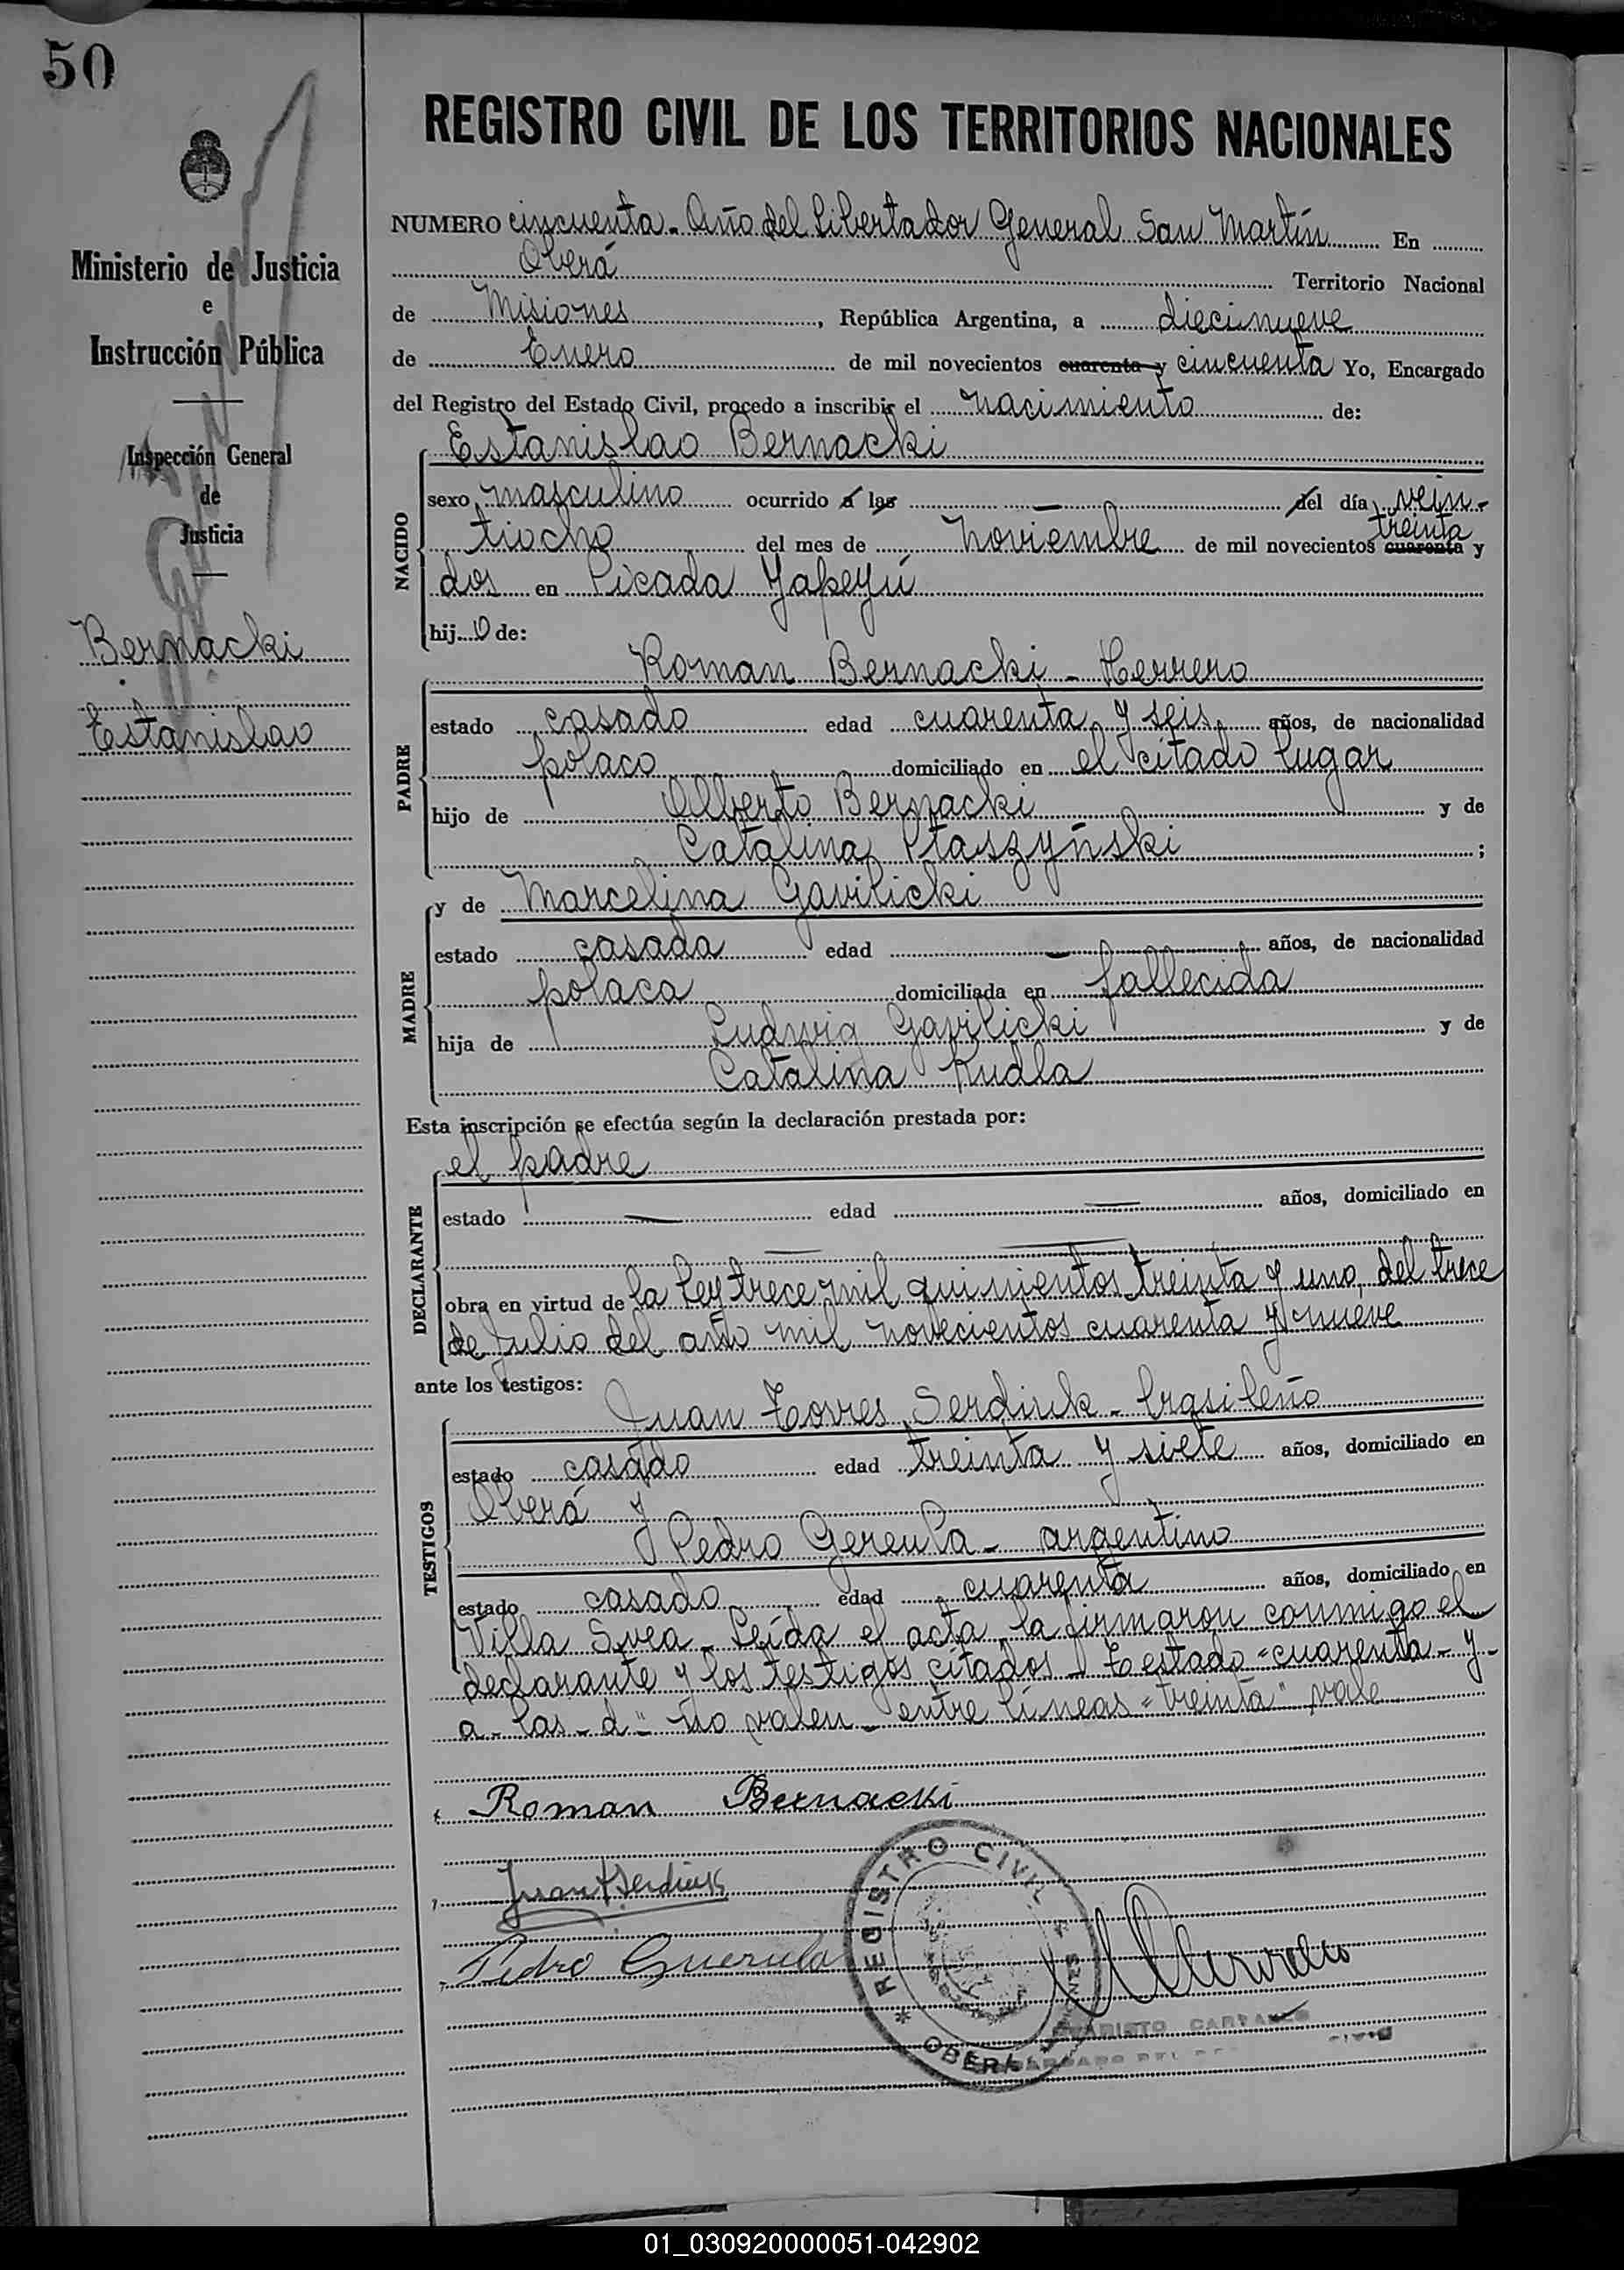 50
REGISTRO CIVIL DE LOS TERRITORIOS NACIONALES
Ministerio de Justicia
e
Instrucción Pública
Inspección General
de
Justicia
Bernacki
Estanislao
NUMERO cincuenta - Año del Libertador General San Martín En
Oberá Territorio Nacional
de Misiones, República Argentina, a diecinueve
de Enero de mil novecientos cuarenta y cincuenta Yo, Encargado
del Registro del Estado Civil, procedo a inscribir el nacimiento de:
NACIDO
Estanislao Bernacki
sexo masculino ocurrido a las — del día vein-
treinta
tiocho del mes de Noviembre de mil novecientos cuarenta y
dos en Picada Yapeyú
hijo de:
PADRE
Roman Bernacki - Herrero
estado casado edad cuarenta y seis años, de nacionalidad
polaco domiciliado en el citado lugar
hijo de Alberto Bernacki y de
Catalina Ptaszyñski ;
MADRE
y de Marcelina Gavilicki
estado casada edad — años, de nacionalidad
polaca domiciliada en fallecida
hija de Ludwig Gavilicki y de
Catalina Kudla
Esta inscripción se efectúa según la declaración prestada por:
DECLARANTE
el padre
estado — edad — años, domiciliado en
— —
obra en virtud de la Ley trece mil quinientos treinta y uno, del trece
de Julio del año mil novecientos cuarenta y nueve
ante los testigos:
TESTIGOS
Juan Torres Serdiuk - brasileño
estado casado edad treinta y siete años, domiciliado en
Oberá y
Pedro Gerula - argentino
estado casado edad cuarenta años, domiciliado en
Villa Svea - Leída el acta la firmaron conmigo el
declarante y los testigos citados - Testado "cuarenta - y -
a - las - d" no valen - entre líneas "treinta" vale
Roman Bernacki
Juan T Serdiuk
Pedro Guerula
* REGISTRO CIVIL *
OBERA
01_030920000051-042902